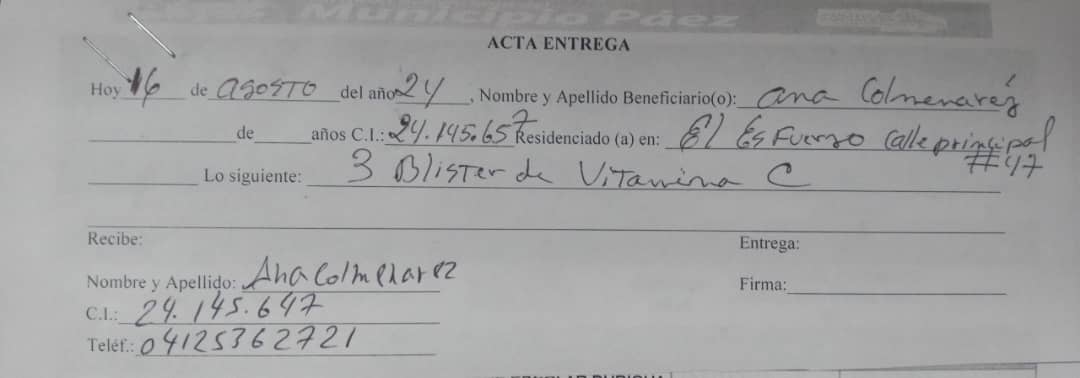 Municipio Páez
ACTA ENTREGA
Hoy 16 de agosto del año 24, Nombre y Apellido Beneficiario(o): Ana Colmenarez
de años C.I.: 24.145.657 Residenciado (a) en: El Esfuerzo Calle principal
#47
Lo siguiente: 3 Blister de Vitamina C
Recibe:
Entrega:
Nombre y Apellido: Ana Colmenarez
Firma:
C.I.: 24.145.647
Teléf.: 04125362721